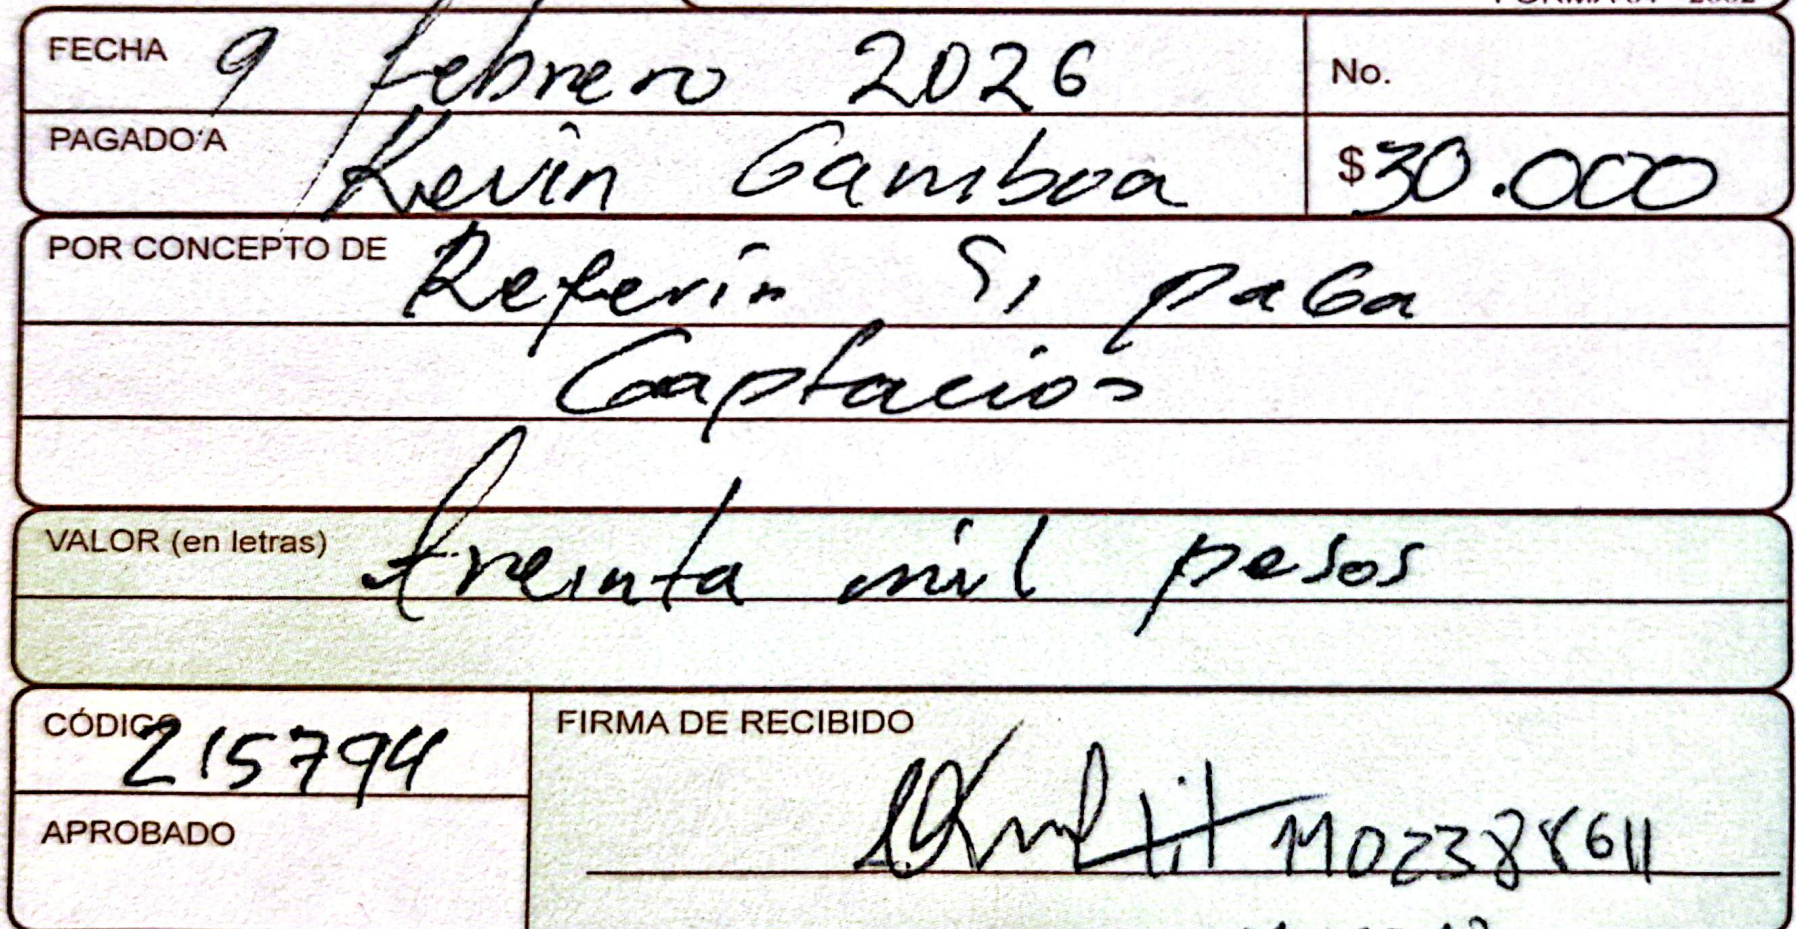 FECHA 9 febrero 2026 No.
PAGADO A Kevin Gamboa $30.000
POR CONCEPTO DE Referin Si paGa
Captacion
VALOR (en letras) treinta mil pesos
CÓDIGO 215794 FIRMA DE RECIBIDO
APROBADO 1102388611